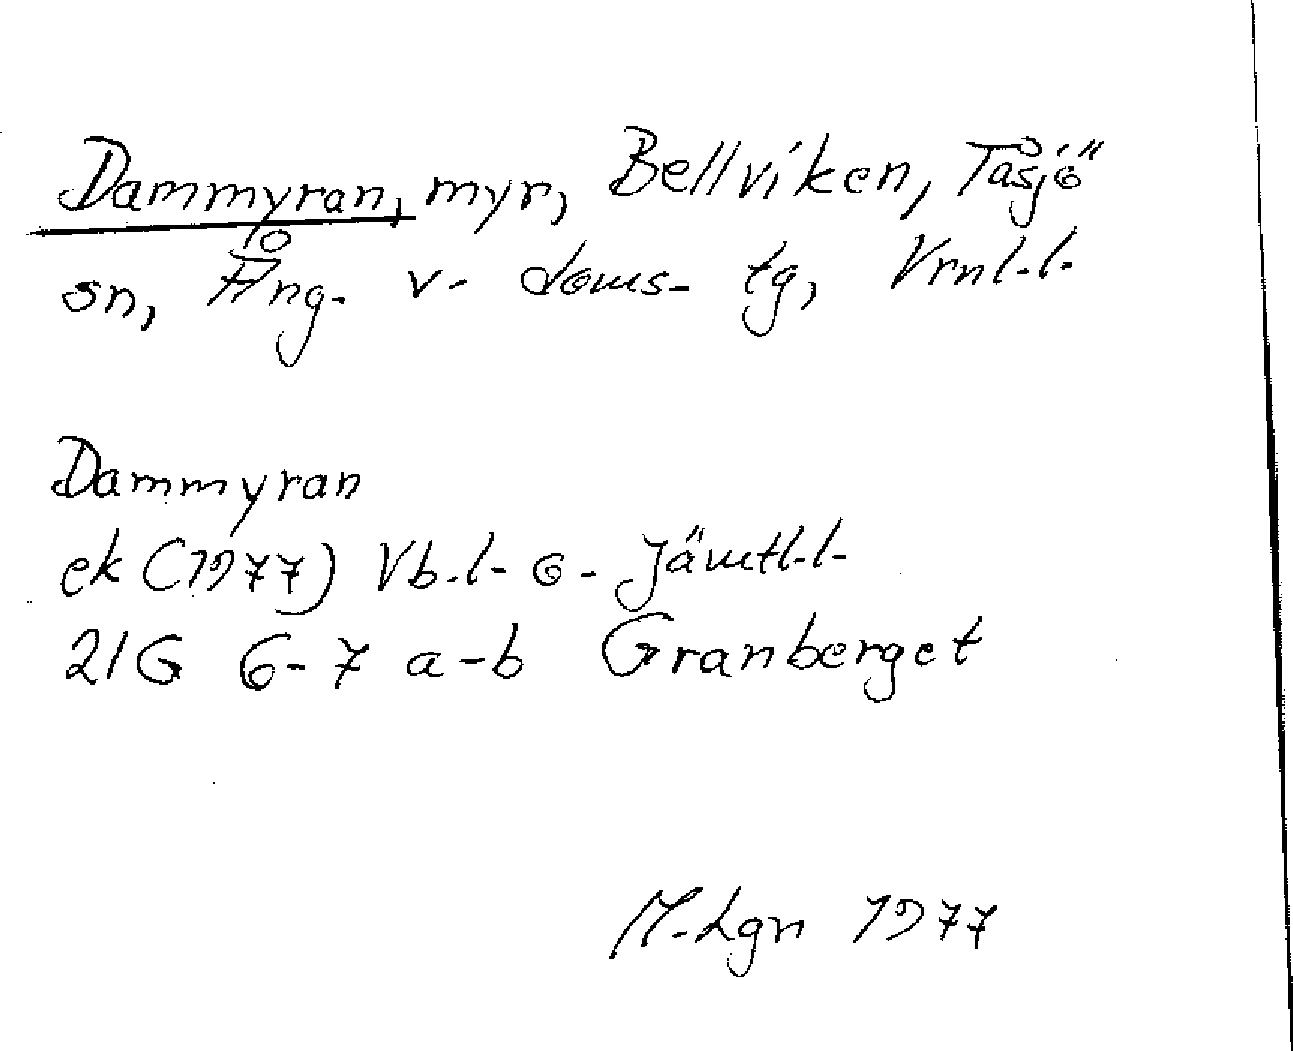 Dammyran, myr, Bellviken, Tåsjö
sn, Ång. v. doms. tg, Vrnl.l.
Dammyran
ek (1977) Vb.l. o. Jämtl.l.
21G 6-7 a-b Granberget
M.Lgn 1977